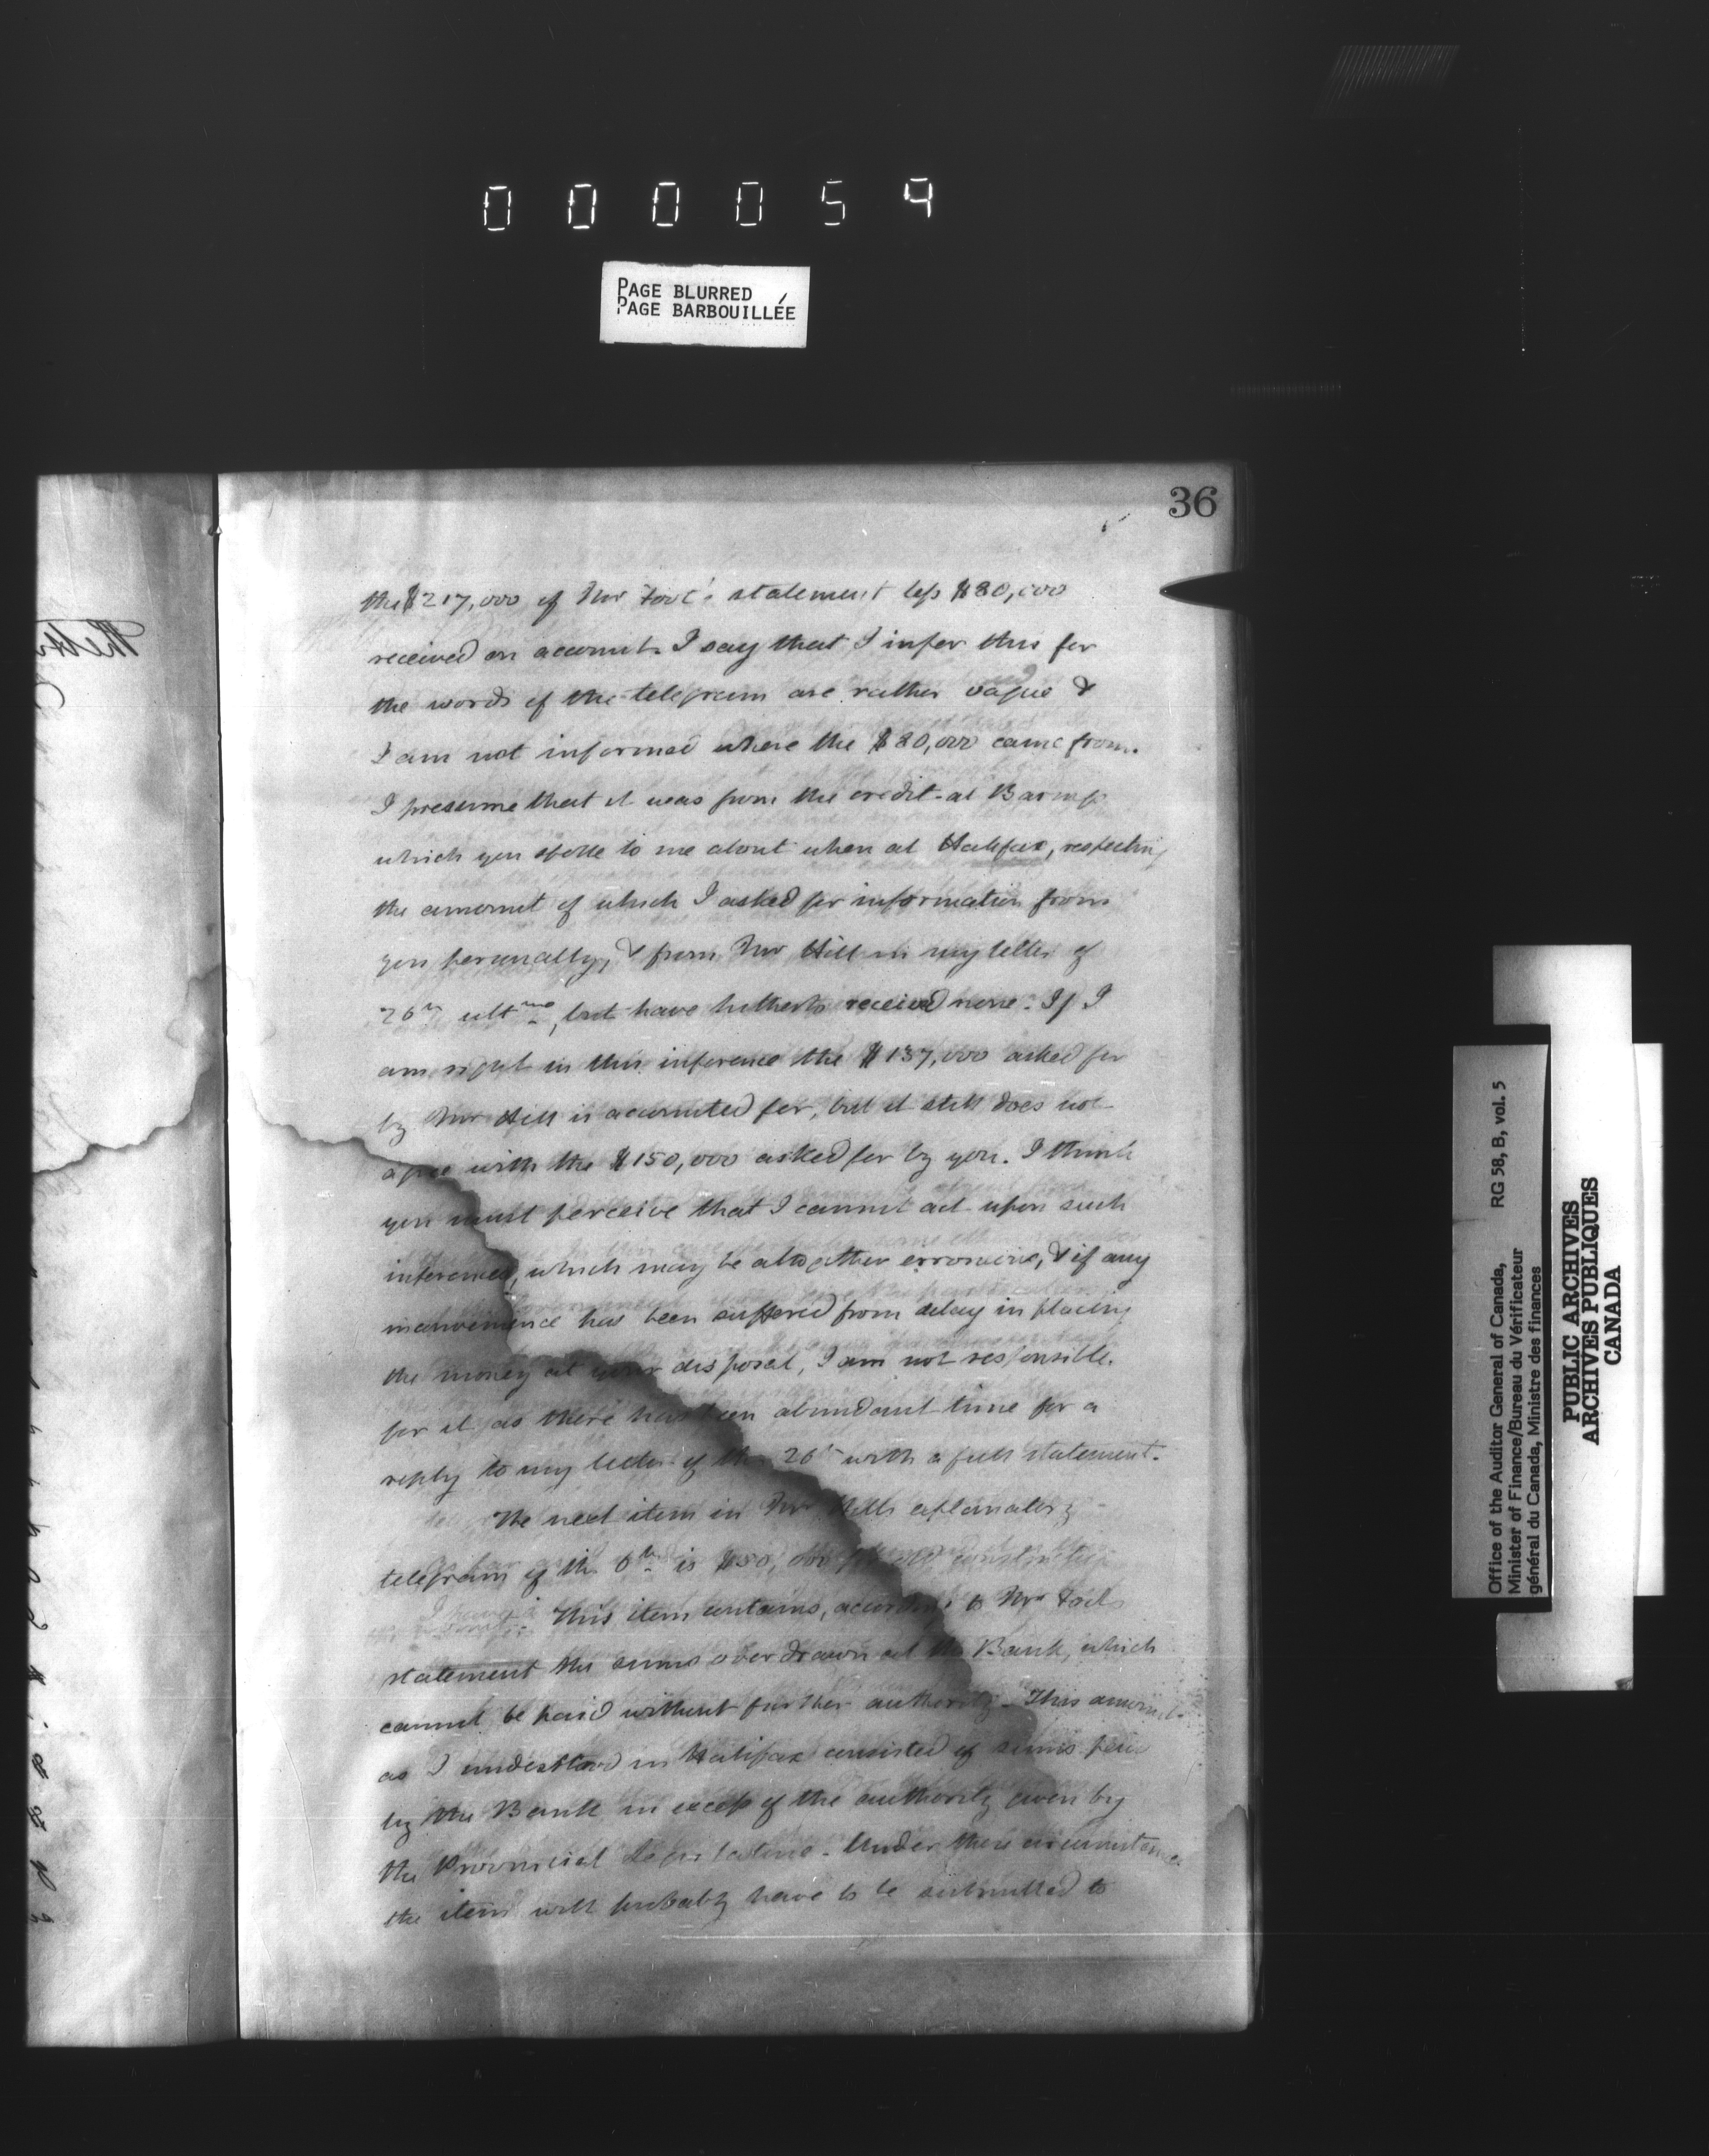 000054
PAGE BLURRED
PAGE BARBOUILLÉE
36
the $217,000 of Mr statement less $80,000
received on account. I say that I infer this for
the words of the telegram are rather vague &
I am not informed where the $80,000 came from.
I presume that it was from the credit at Barings
which you spoke to me about when at Halifax, respecting
the amount of which I asked for information from
you personally, & from Mr Hill in my letter of
26th ultmo, but have hitherto received none. If I
am right in this inference the $137,000 asked for
by Mr Hill is accounted for, but it still does not
agree with the $150,000 asked for by you. I think
you must perceive that I cannot act upon such
inferences, which may be altogether erroneous, & if any
inconvenience has been suffered from delay in placing
the money at your disposal, I am not responsible
for it as there has been abundant time for a
reply to my letter of the 26th with a full statement.
The next item in Mr Hill's explanatory
telegram of the 6th is $50,000 for construction
This item contains, according to Mr
statement the sums overdrawn at the Bank, which
cannot be paid without further authority. This amount
as I understood in Halifax consisted of sums paid
by the Bank in excess of the authority given by
the Provincial Legislature. Under these circumstances
the item will probably have to be submitted to
Office of the Auditor General of Canada, RG 58, B, vol. 5
Minister of Finance/Bureau du Vérificateur
général du Canada, Ministre des finances
PUBLIC ARCHIVES
ARCHIVES PUBLIQUES
CANADA